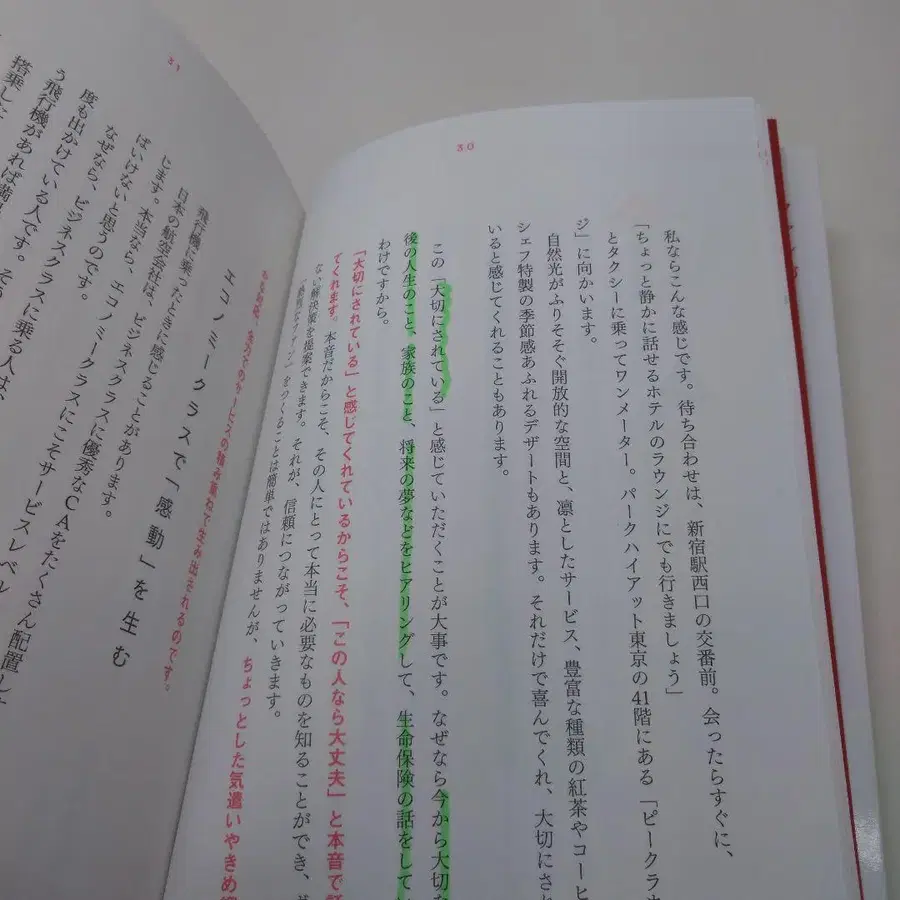 30
私ならこんな感じです。待ち合わせは、新宿駅西口の交番前。会ったらすぐに、
「ちょっと静かに話せるホテルのラウンジにでも行きましょう」
とタクシーに乗ってワンメーター。パークハイアット東京の41階にある「ピークラ
ジ」に向かいます。
自然光がふりそそぐ開放的な空間と、凛としたサービス、豊富な種類の紅茶やコーヒ
シェフ特製の季節感あふれるデザートもあります。それだけで喜んでくれ、大切にさ
いると感じてくれることもあります。
この「大切にされている」と感じていただくことが大事です。なぜなら今から大切な
後の人生のこと、家族のこと、将来の夢などをヒアリングして、生命保険の話をして
わけですから。
「大切にされている」と感じてくれているからこそ、「この人なら大丈夫」と本音で
てくれます。本音だからこそ、その人にとって本当に必要なものを知ることができ、
ない解決策を提案できます。それが、信頼につながっていきます。
をつくることは簡単ではありませんが、ちょっとした気遣いやきめ
サービスの積み重ねで生み出されるのです。
31
エコノミークラスで「感動」を生む
飛行機に乗ったときに感じることがあります。
日本の航空会社は、ビジネスクラスに優秀なCAをたくさん配置し
じます。本当なら、エコノミークラスにこそサービスレベル
ばいけないと思うのです。
なぜなら、ビジネスクラスに乗る人は、
度も出かけている人です。そ
う飛行機があれば
搭乗した